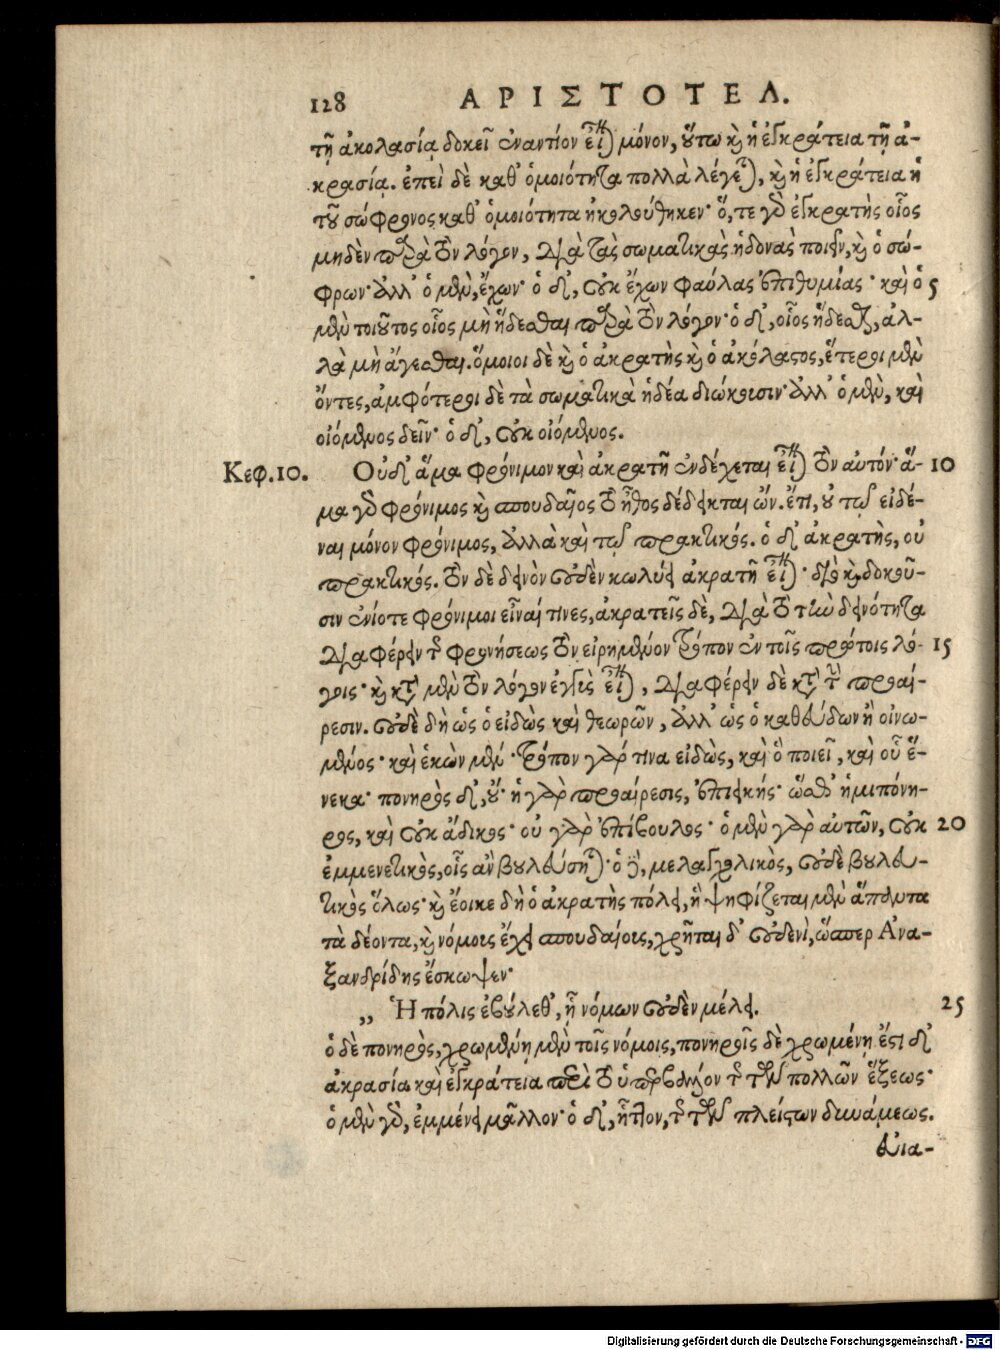 128 ΑΡΙΣΤΟΤΕΛ.
τῇ ἀκολασίᾳ δοκεῖ ἐναντίον εἶναι μόνον, οὕτω καὶ ἡ ἐγκράτεια τῇ ἀ-
κρασίᾳ. ἐπεὶ δὲ καθ' ὁμοιότητα πολλὰ λέγεται, καὶ ἡ ἐγκράτεια ἡ
τοῦ σώφρονος καθ' ὁμοιότητα ἠκολούθηκεν· ὅ, τε γὰρ ἐγκρατὴς οἷος
μηδὲν παρὰ τὸν λόγον, διὰ τὰς σωματικὰς ἡδονὰς ποιεῖν, καὶ ὁ σώ-
φρων· ἀλλ' ὁ μὲν, ἔχων· ὁ δ', οὐκ ἔχων φαύλας ἐπιθυμίας· καὶ ὁ 5
μὲν τοιοῦτος οἷος μὴ ἥδεσθαι παρὰ τὸν λόγον· ὁ δ', οἷος ἥδεσθαι, ἀλ-
λὰ μὴ ἄγεσθαι. ὅμοιοι δὲ καὶ ὁ ἀκρατὴς καὶ ὁ ἀκόλαστος, ἕτεροι μὲν
ὄντες, ἀμφότεροι δὲ τὰ σωματικὰ ἡδέα διώκουσιν· ἀλλ' ὁ μὲν, καὶ
οἰόμενος δεῖν· ὁ δ', οὐκ οἰόμενος.
Κεφ. 10. Οὐδ' ἅμα φρόνιμον καὶ ἀκρατῆ ἐνδέχεται εἶναι τὸν αὐτόν· ἅ- 10
μα γὰρ φρόνιμος καὶ σπουδαῖος τὸ ἦθος δέδεικται ὤν. ἔτι, οὐ τῷ εἰδέ-
ναι μόνον φρόνιμος, ἀλλὰ καὶ τῷ πρακτικός. ὁ δ' ἀκρατὴς, οὐ
πρακτικός. τὸν δὲ δεινὸν οὐδὲν κωλύει ἀκρατῆ εἶναι· διὸ καὶ δοκοῦ-
σιν ἐνίοτε φρόνιμοι εἶναί τινες, ἀκρατεῖς δὲ, διὰ τὸ τὴν δεινότητα
διαφέρειν τῆς φρονήσεως τὸν εἰρημένον τρόπον ἐν τοῖς πρώτοις λό- 15
γοις· καὶ κατὰ μὲν τὸν λόγον ἐγγὺς εἶναι, διαφέρειν δὲ κατὰ τὴν προαί-
ρεσιν. οὐδὲ δὴ ὡς ὁ εἰδὼς καὶ θεωρῶν, ἀλλ' ὡς ὁ καθεύδων ἢ οἰνω-
μένος· καὶ ἑκὼν μέν· τρόπον γάρ τινα εἰδὼς, καὶ ὃ ποιεῖ, καὶ οὗ ἕ-
νεκα· πονηρὸς δ', οὔ· ἡ γὰρ προαίρεσις, ἐπιεικής· ὥσθ' ἡμιπόνη-
ρος, καὶ οὐκ ἄδικος· οὐ γὰρ ἐπίβουλος· ὁ μὲν γὰρ αὐτῶν, οὐκ 20
ἐμμενετικὸς, οἷς ἂν βουλεύσηται· ὁ δὲ, μελαγχολικὸς, οὐδὲ βουλευ-
τικὸς ὅλως· καὶ ἔοικε δὴ ὁ ἀκρατὴς πόλει, ἣ ψηφίζεται μὲν ἅπαντα
τὰ δέοντα, καὶ νόμους ἔχει σπουδαίους, χρῆται δ' οὐδενὶ, ὥσπερ Ἀνα-
ξανδρίδης ἔσκωψεν·
„ Ἡ πόλις ἐβούλεθ', ᾗ νόμων οὐδὲν μέλει. 25
ὁ δὲ πονηρὸς, χρωμένῃ μὲν τοῖς νόμοις, πονηροῖς δὲ χρωμένῃ. ἔστι δ'
ἀκρασία καὶ ἐγκράτεια περὶ τὸ ὑπερβάλλον τῆς τῶν πολλῶν ἕξεως·
ὁ μὲν γὰρ, ἐμμένει μᾶλλον· ὁ δ', ἧττον, τῆς τῶν πλείστων δυνάμεως.
εὐια-
Digitalisierung gefördert durch die Deutsche Forschungsgemeinschaft - DFG